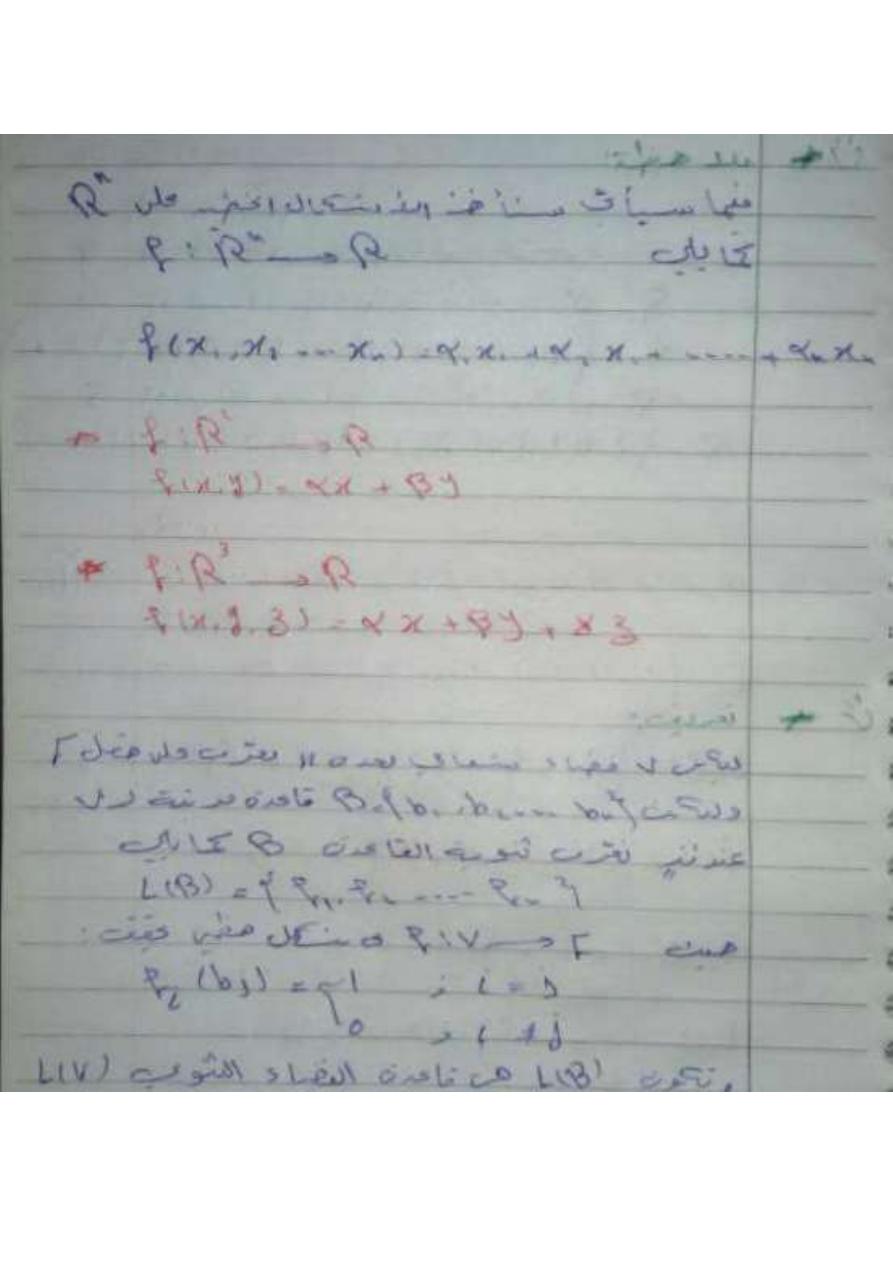 ملاحظة:
فيما سيأتي سنأخذ الأشكال الخطية على Rⁿ
كما يلي f : Rⁿ → R
f(x₁, x₂ ... xₙ) = α₁x₁ + α₂x₂ + ..... + αₙxₙ
f : R² → R
f(x, y) = αx + βy
* f : R³ → R
f(x, y, z) = αx + βy + γz
تعريف:
ليكن V فضاء شعاعي بعده n معرف على حقل F
وليكن B = {b₁, b₂, ... bₙ} قاعدة مرتبة لـ V
عندئذٍ نعرف ثنوية القاعدة B كما يلي
L(B) = {f₁, f₂ .... fₙ}
حيث f : V → F شكل خطي حققت:
fᵢ(bⱼ) = { 1 ; i = j
0 ; i ≠ j
وتكون L(B) هي قاعدة الفضاء الثنوي L(V)